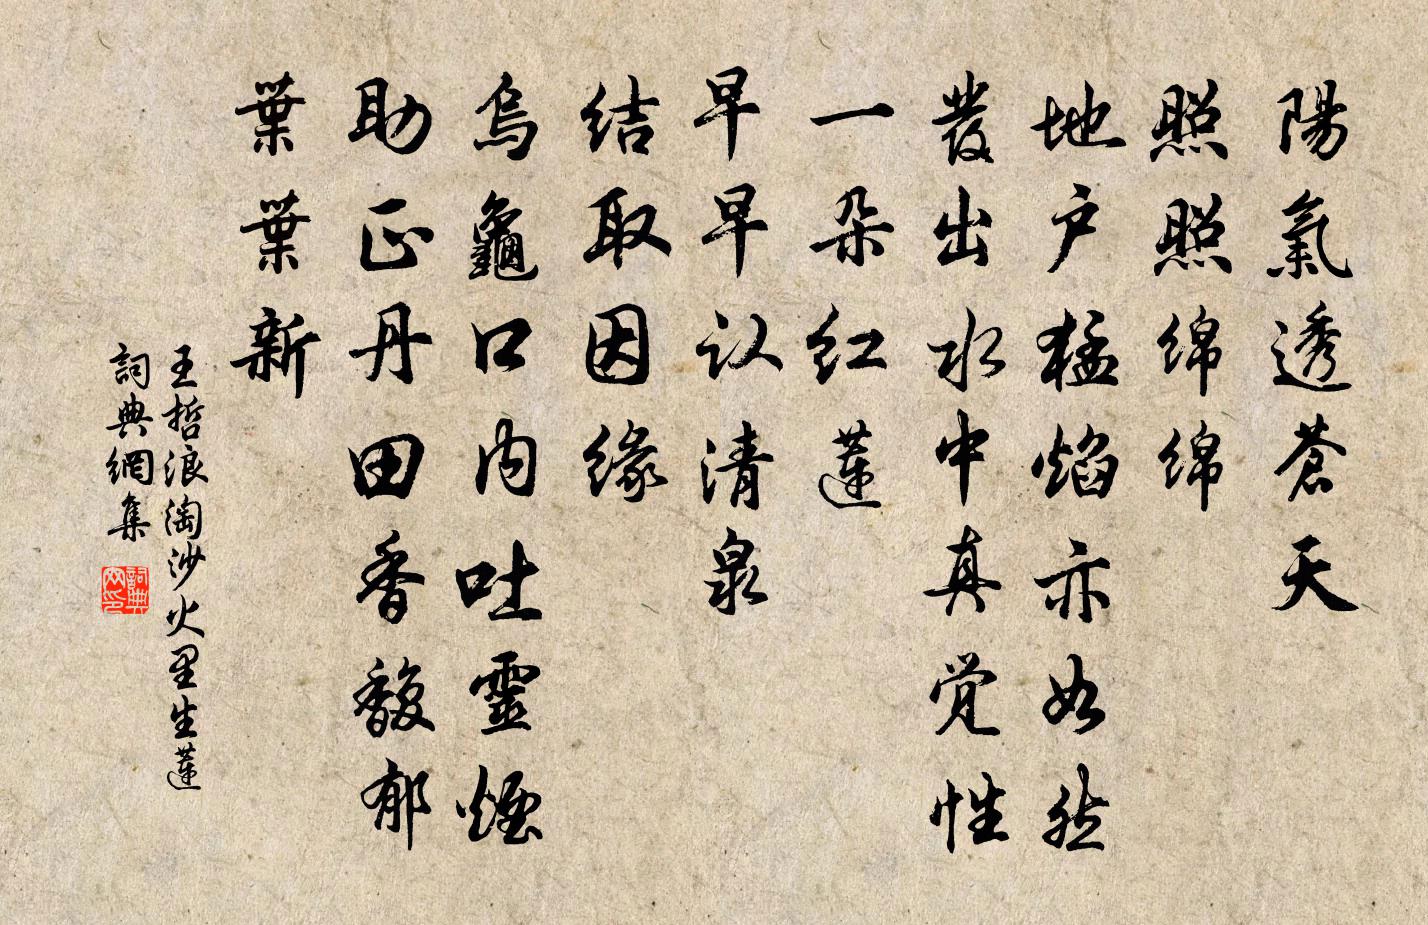 陽氣透蒼天
照照绵绵
地户猛焰亦如然
發出水中真觉性
一朵红蓮
早早认清泉
结取因缘
烏龜口内吐靈煙
助正丹田香馥郁
葉葉新
王哲浪淘沙火里生蓮
詞典網集
詞典网印